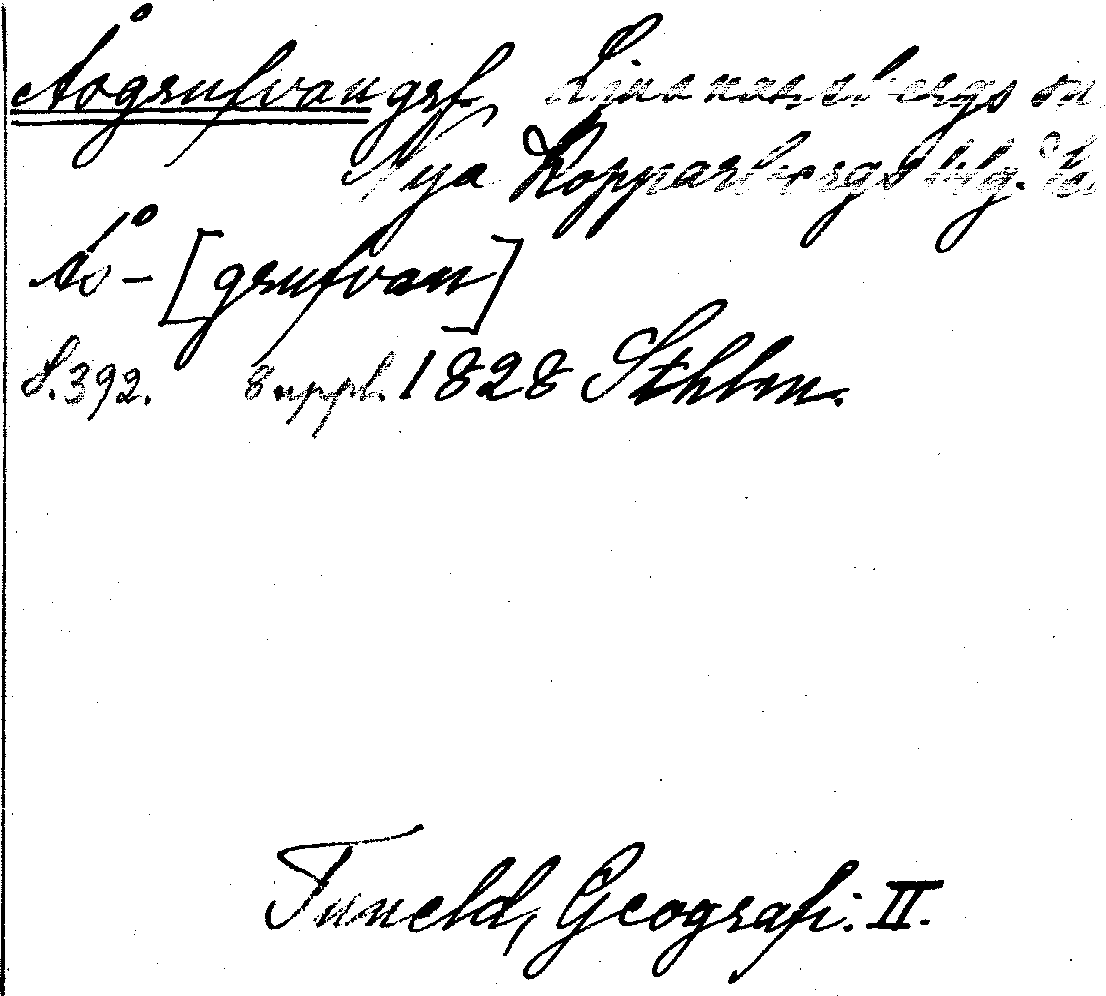 Åsgrufvan grf. Linnarsbergs sn
Nya Kopparbergs blg.
Ås- [grufvan]
S. 392. 8 uppl. 1828 Sthlm.
Tuneld, Geografi. II.